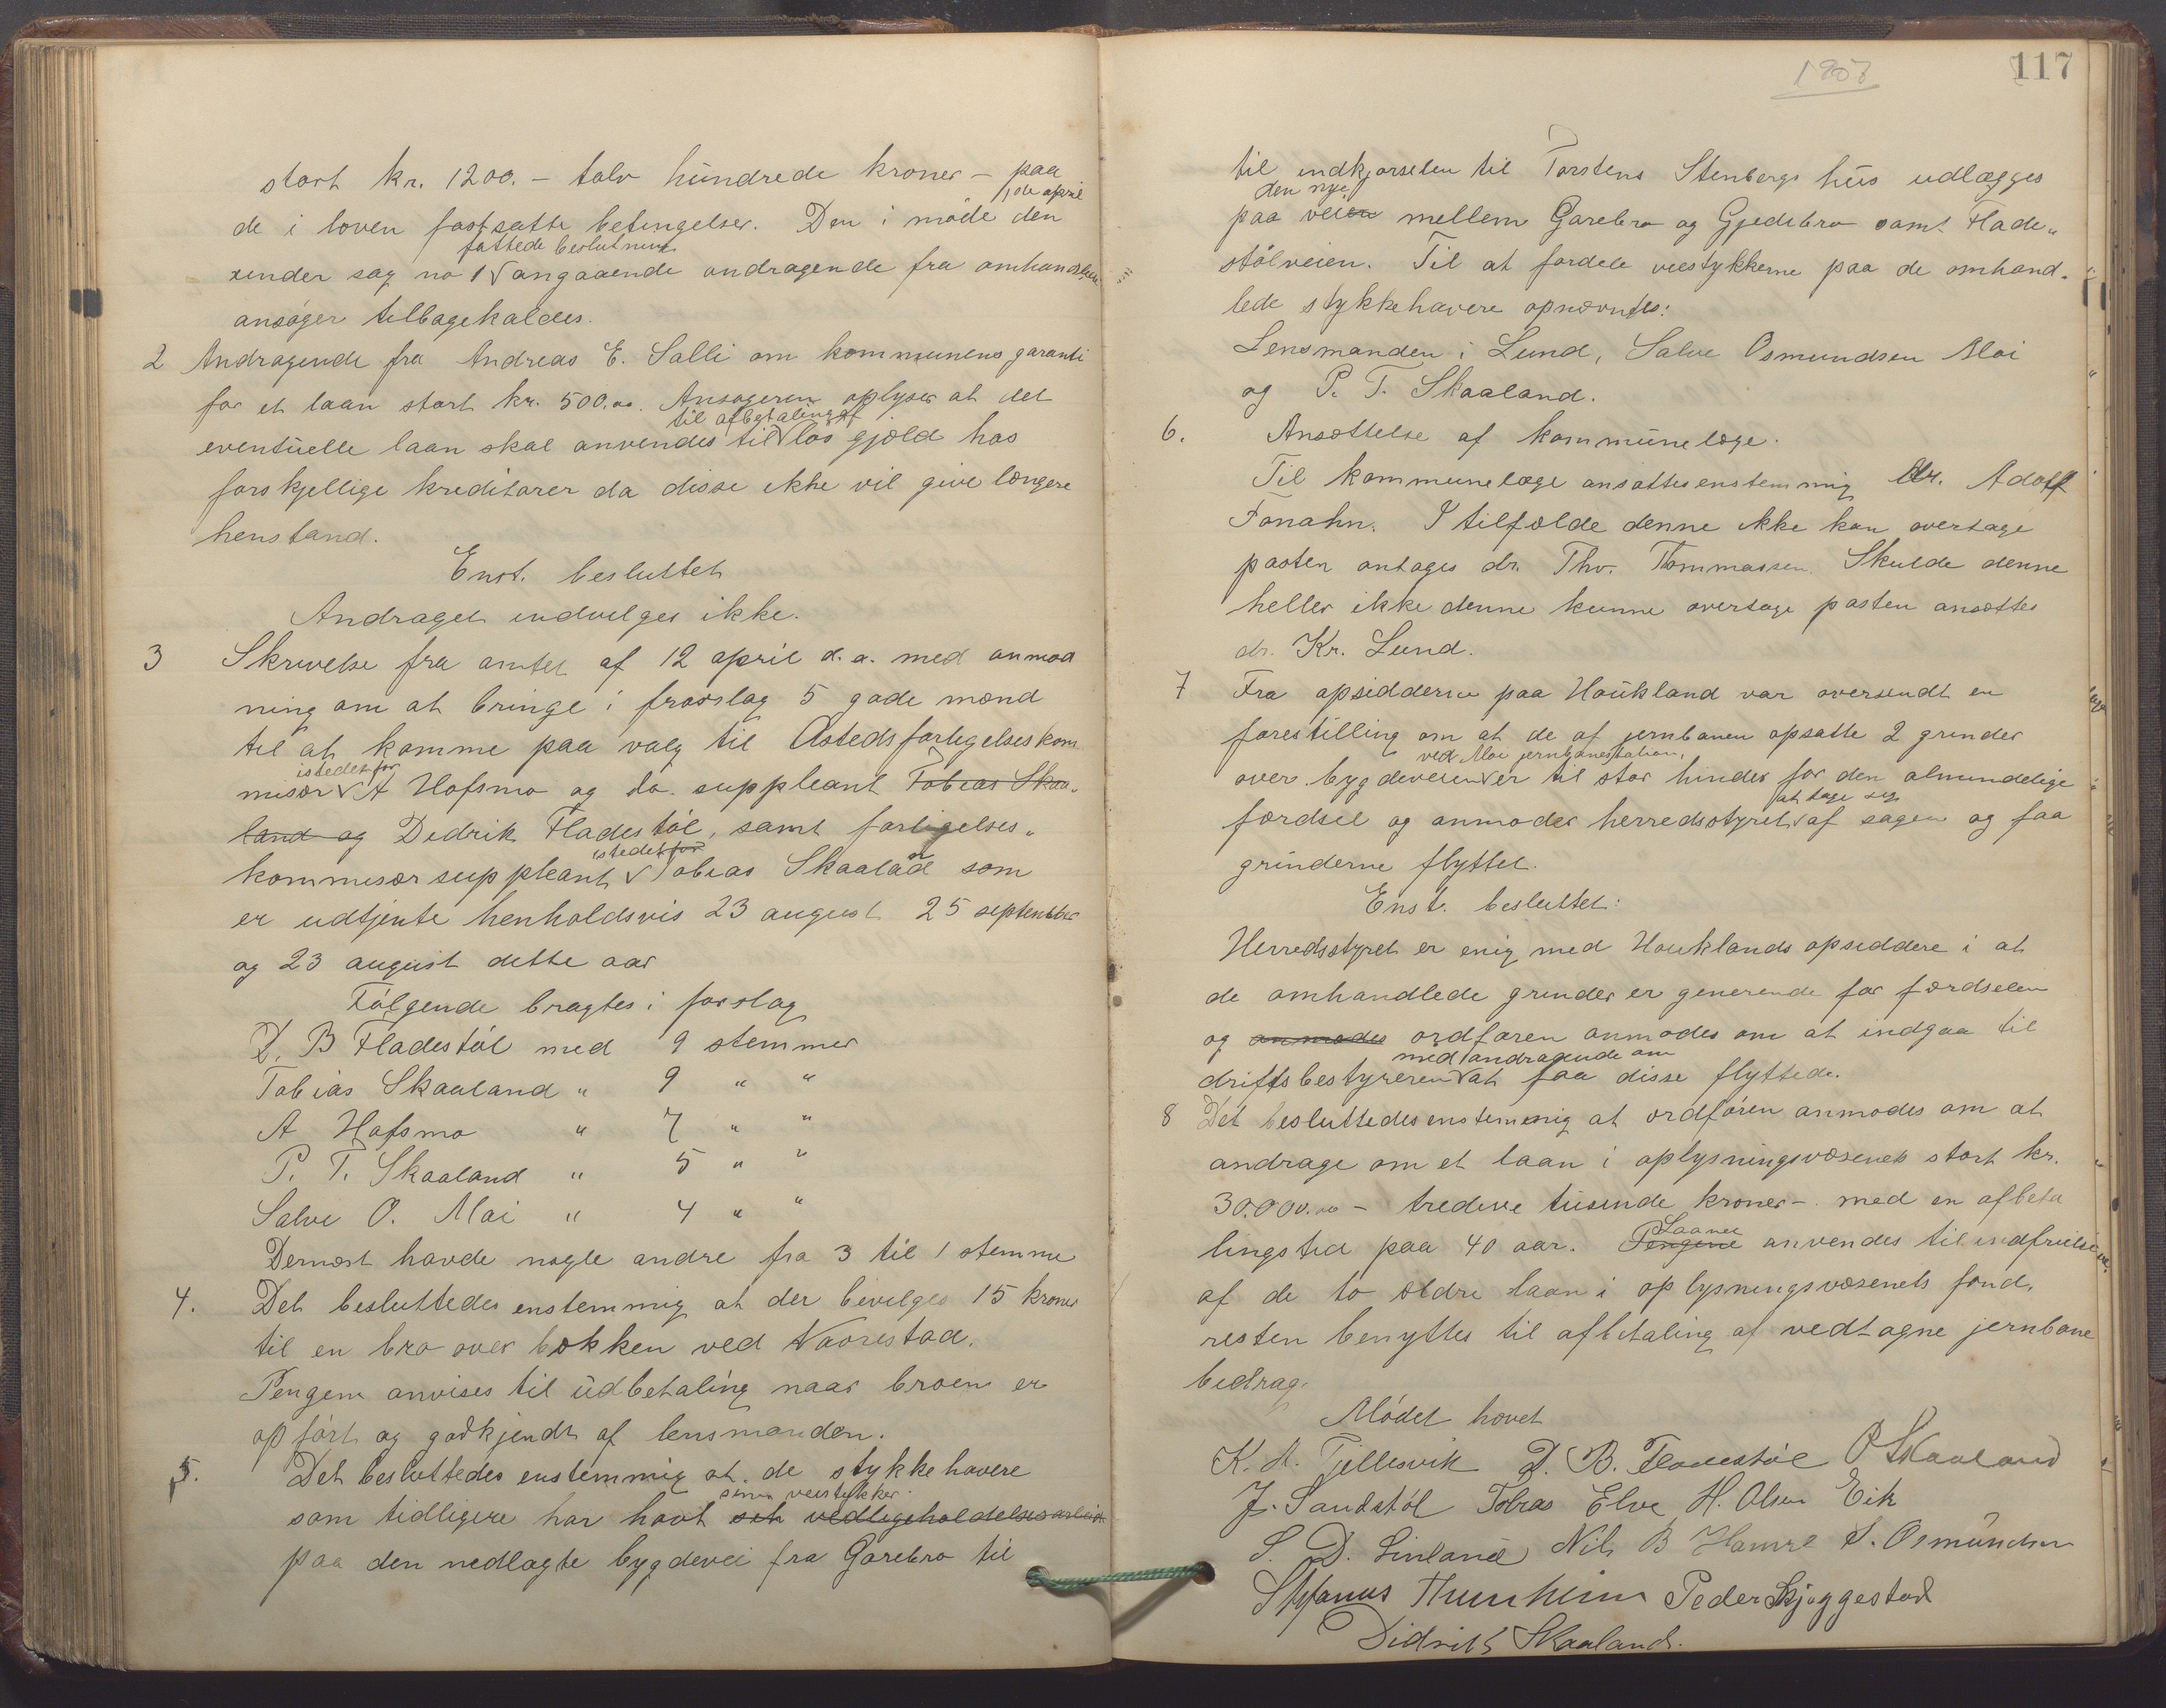 stort kr. 1200.- tolv hundrede kroner - paa
de i loven fastsatte betingelser. Den i møde den 1ste april
under sag no 1 fattede beslutning angaaende andragende fra omhandlede
ansøger tilbagekaldes.
2 Andragende fra Andreas E. Salli om kommunens garanti
for et laan stort kr. 500.00. Ansøgeren oplyser at det
eventuelle laan skal anvendes til til afbetaling af løs gjæld hos
forskjellige kreditorer da disse ikke vil give længere
henstand.
Enst. besluttet
Andraget indvilges ikke.
3 Skrivelse fra amtet af 12 april d.a. med anmod
ning om at bringe i frorslag 5 gode mænd
til at komme paa valg til Åstedsforligelseskom
misær istedetfor A Hofsmo og do. suppleant Tobias Skaa-
land og Didrik Fladestøl, samt forligelses-
kommisær suppleant istedetfor Tobias Skaaland som
er udtjente henholdsvis 23 august 25 september
og 23 august dette aar
Følgende bragtes i forslag
D. B Fladestøl med 9 stemmer
Tobias Skaaland " 9 " "
A Hofsmo " 7 " "
P. T. Skaaland " 5 " "
Salve O. Moi " 4 " "
Dernæst havde nogle andre fra 3 til 1 stemme
4. Det besluttedes enstemmig at der bevilges 15 kroner
til en bro over bækken ved Naorestad.
Pengene anvises til udbetaling naar broen er
opført og godkjendt af lensmanden.
5. Det besluttedes enstemmig at de stykkehavere
som tidligere har havt sit vedligeholdelsesarbeide sine veistykker
paa den nedlagte bygdevei fra Garebro til
1907
117
til indkjørselen til Torstens Stenbergs hus udlægges
paa den nye veien mellem Garebro og Gjedebro samt Flade-
stølveien. Til at fordele veistykkerne paa de omhand-
lede stykkehavere opnævntes:
Lensmanden i Lund, Salve Osmundsen Moi
og P. T. Skaaland.
6. Ansættelse af kommunelæge.
Til kommunelæge ansattes enstemmig dr. Adolf
Fonahn. I tilfælde denne ikke kan overtage
posten antages dr. Thv. Thommassen. Skulde denne
heller ikke denne kunne overtage posten ansættes
dr. Kr. Lund.
7 Fra opsidderne paa Houkland var oversendt en
forestilling om at de af jernbanen opsatte 2 grinder
over bygdeveien ved Moi jernbanestation, er til stor hinder for den almindelige
færdsel og anmoder herredsstyret at tage sig af sagen og faa
grinderne flyttet.
Enst. besluttet:
Herredsstyret er enig med Houklands opsiddere i at
de omhandlede grinder er generende for færdselen
og anmodes ordføren anmodes om at indgaa til
driftsbestyreren med andragende om at faa disse flyttede.
8 Det besluttedes enstemmig at ordføren anmodes om at
andrage om et laan i oplysningsvæsenets stort kr.
30.000.00 - tredive tusende kroner - med en afbeta
lingstid paa 40 aar. Pengene Laanee anvendes til indfrielse
af de to ældre laan i oplysningsvæsenets fond,
resten benyttes til afbetaling af vedtagne jernbane
bedrag.
Mødet hævet
K. A. Tjellesvik D. B. Fladestøl P Skaaland
J. Sandstøl Tobias Elve H. Olsen Eik
S. D. Linland Nils B Hamre S. Osmundsen
Stefanus Thunheim Peder Skjeggestad
Didrik Skaaland.